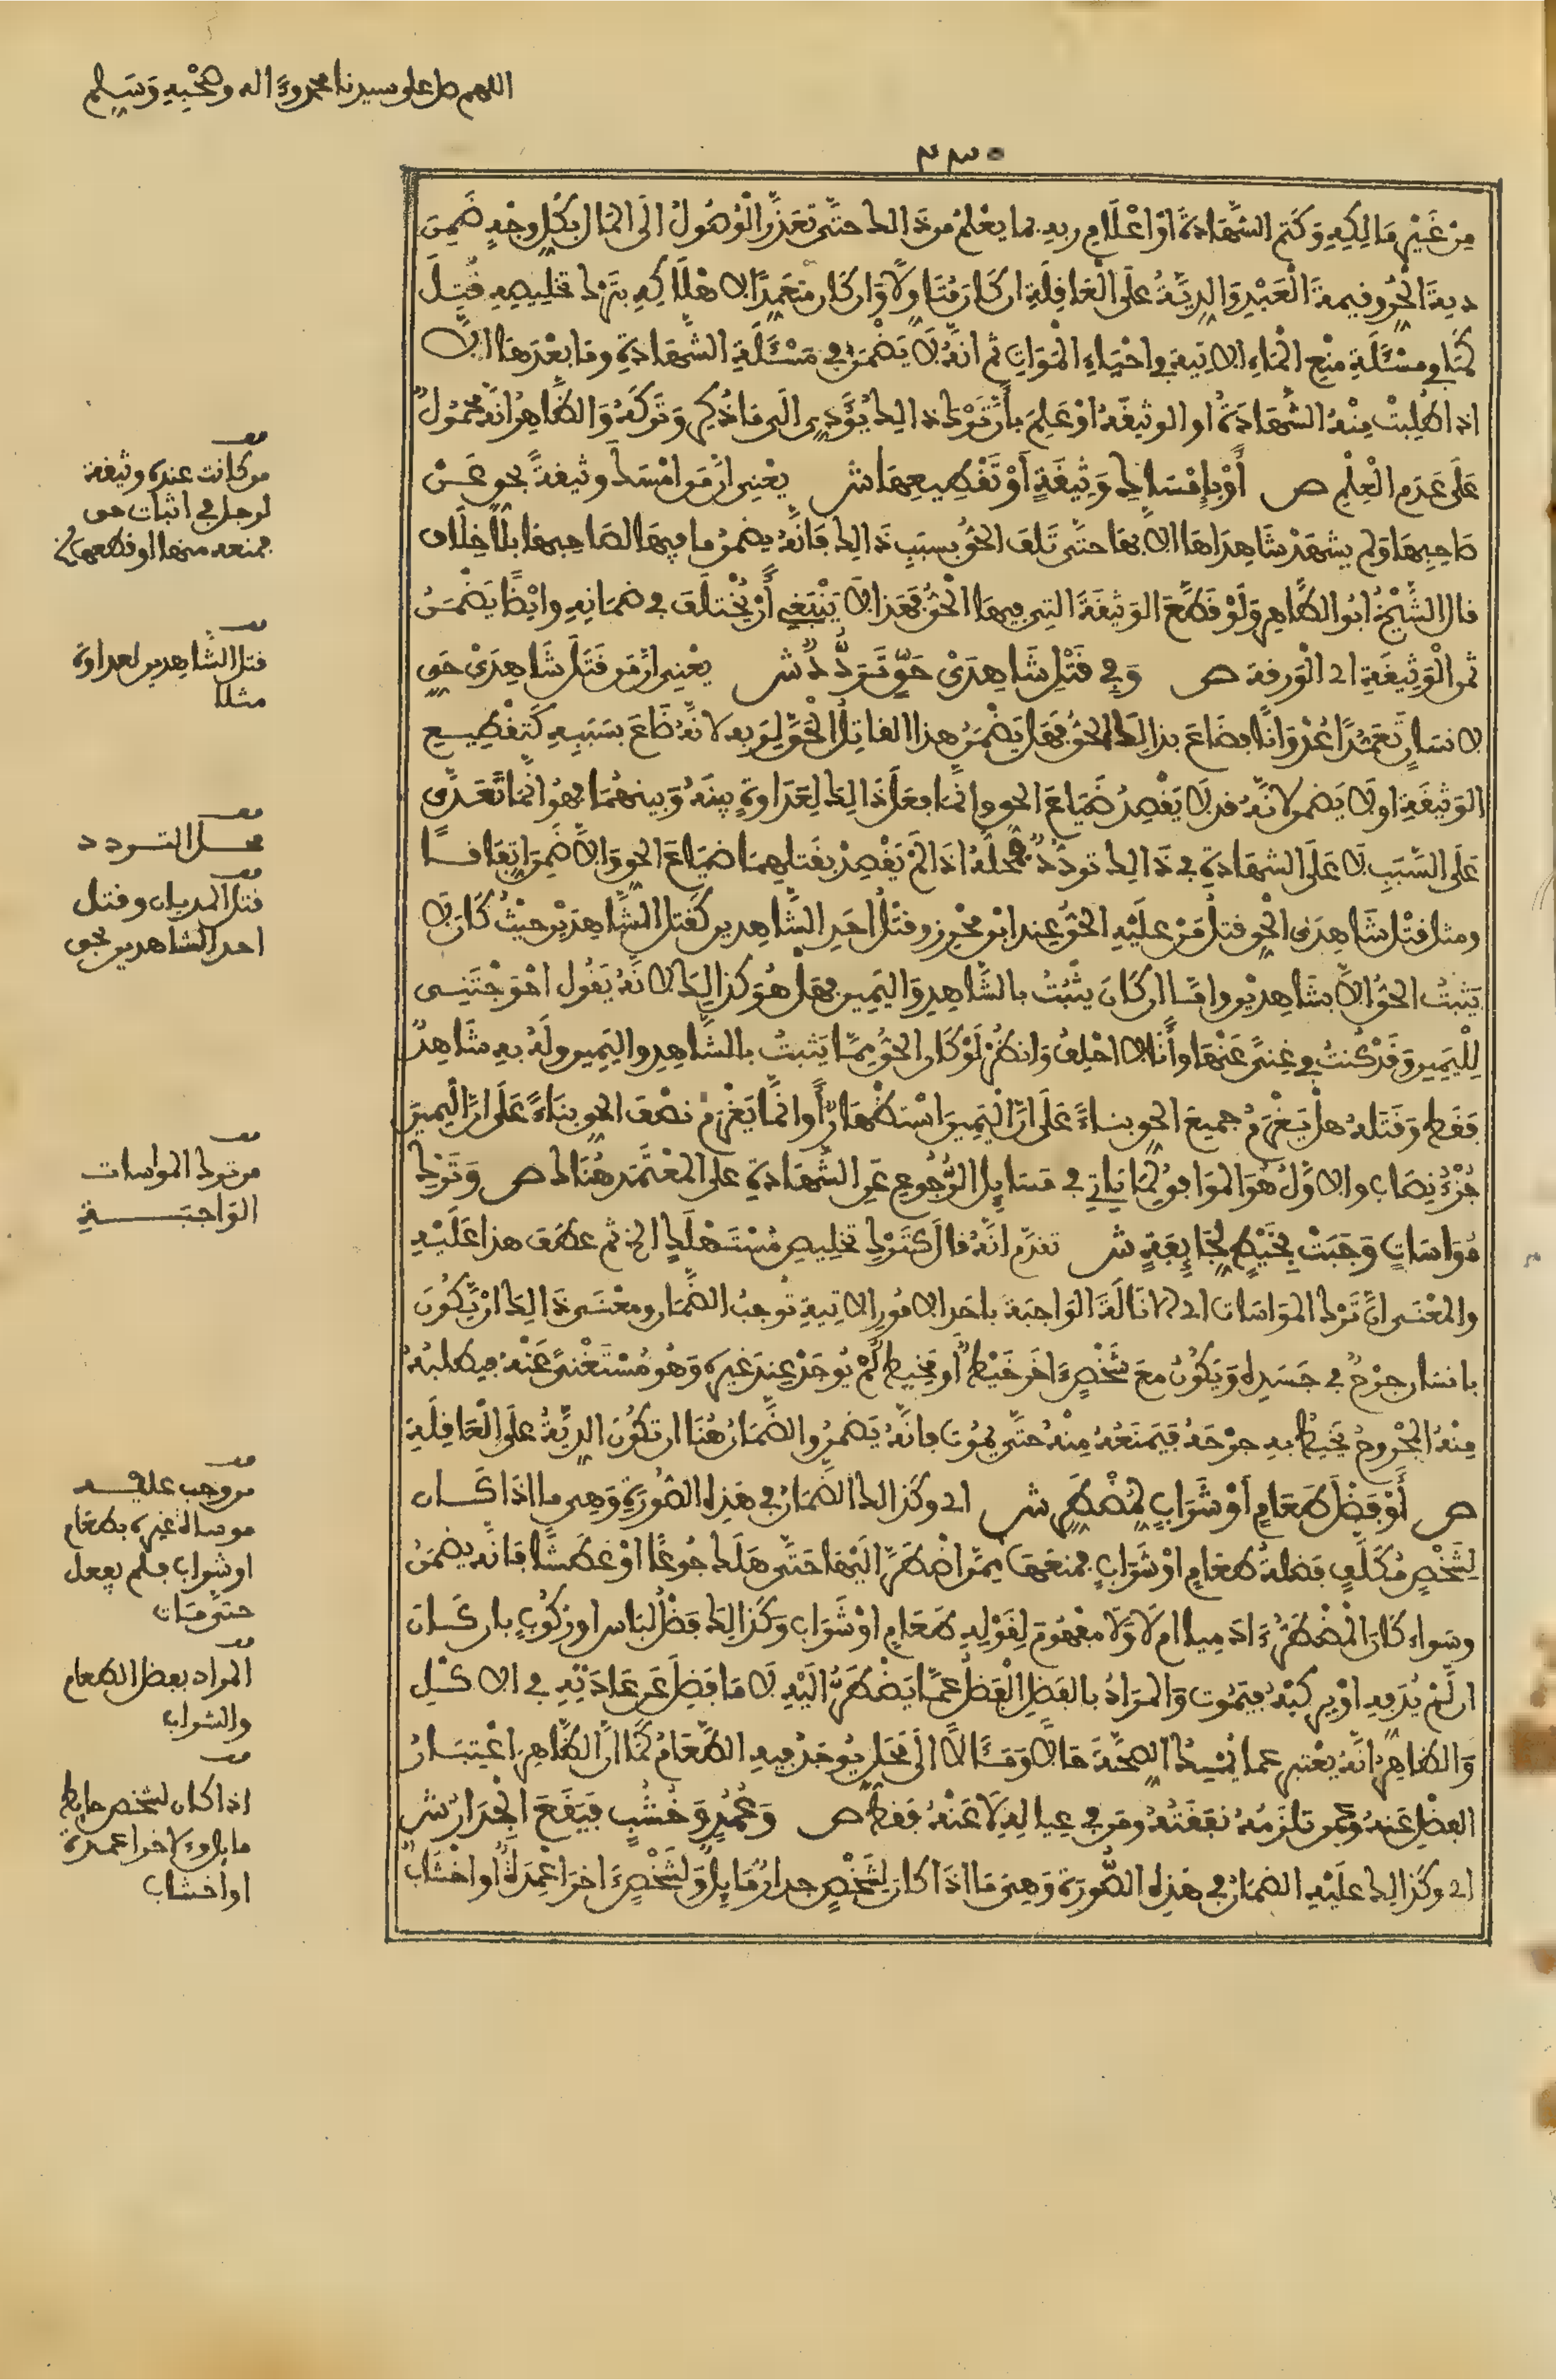 اللهم صل على سيدنا محمد وءاله وصحبه وسلم
٢٣٠
مِنْ غَيْرِ مَالِكِهِ وَكَتَمَ الشَّهَادَةَ أَوْ إِعْلَامِ رَبِهِ بما يعْلمُ من ذَالك حتَّى تعَذَّرَ الْوُصُولُ الَى المَال بكُلِ وجْهٍ ضَمِنَ
ديةَ الحُرِّ وقيمةَ الْعَبْدِ وَالدِيَّةُ علَى الْعَاقِلَةِ ان كَانَ مُتَاوِلًا وَإِن كَانَ متعَمِدًا لاهْلَاكِهِ بتَرْك تخْلِيصِهِ قُتِلَ
كمَا في مسْئَلَةِ منْعِ المَاءِ الاتِيَةِ في احْيَاءِ الْمَوَاتِ ثم انَّهُ لَا يَضْمَنُ في مَسْئَلَةِ الشَّهَادةِ ومَا بعْدَهَا الَّا
اذا طُلِبتْ مِنْهُ الشَّهَادَةُ او الوثيقَةُ اوْ عَلِمَ بأَنَّ تَرْكَ ذالك يُؤَدِّي الَى مَا ذُكِرَ وَتَرَكَهُ وَالظَّاهِرُ انَّه محْمُولٌ
عَلَى عَدَمِ الْعِلْمِ ص أَوْ بِإِمْسَاكِ وَثِيقَةٍ أَوْ تَقْطِيعِهَا ش يعْنِي انَّ مَن امْسَكَ وثيقةً بحق عَنْ
صَاحِبِهَا وَلم يشهَدْ شَاهِدَاهَا الا بهَا حتَّى تَلِفَ الحَقُّ بسبَبِ ذَالك فَانَّهُ يضْمنُ ما فيهَا لصَاحِبِهَا بلَا خِلَاف
قال الشَّيْخُ ابُو الطَّاهِرِ وَلَوْ قَطَّعَ الوَثيقَةَ التِي فِيهَا الْحَقُّ فَهَذا لَا يَنْبَغِي أَنْ يُخْتلَفَ في ضمَانِهِ وايْضًا يَضْمَنُ
ثمن الْوَثِيقَةِ اي الْوَرقة ص وَفِي قَتْلِ شَاهِدَيْ حَقٍّ تَرَدُّدٌ ش يعْنِي انَّ مَن قَتَلَ شَاهِدَيْ حَقٍ
لانسَانٍ تَعَمُّدًا عُدْوَانًا فضَاعَ بذَالِكَ الْحَقُّ فهَل يَضْمَنُ هذا القاتِلُ الْحَقَّ لِرَبهِ لانَّهُ ضَاعَ بسَبَبِهِ كَتقْطِيعِ
الوَثيقَةِ او لَا يَضمن لانَّهُ قد لَا يَقْصِدُ ضَيَاعَ الحق وانَّمَا فعَلَ ذَالِكَ لِعَدَاوَةٍ بينَهُ وَبينهُمَا فهُو انَّمَا تَعَدَّى
عَلَى السَّبَبِ لَا عَلَى الشهَادَةِ في ذَالِك تردُّدٌ محَلّهُ اذَا لَمْ يَقْصِدْ بقَتلِهِمَا ضيَاعَ الحق وَإلَّا ضَمِنَ اتِفَاقًا
ومثل قتْل شَاهِدَىِ الْحق قتلُ مَنْ علَيْهِ الحَقُّ عِند ابْن محْرِز وقتْلُ احَدِ الشَّاهِدين كَقتل الشَّاهِدَيْن حيْثُ كَانَ لَا
يَثبتُ الحَقُّ الَّا بشَاهِدَيْن وامَّا ان كَانَ يثْبُتُ بالشَّاهِدِ وَاليَمِين فهَلْ هُوَ كَذالِكَ لانَّهُ يَقُول احْوَجْتَنِى
لِلْيَمِين وَقَدْ كُنتُ في غِنىً عَنْهَا وأَنَا لَا احْلِفُ وَانظُرْ لَوْ كَانَ الحَقُّ مِمَّا يَثبتُ بالشَّاهِدِ واليَمِين ولَهُ بِهِ شَاهِدٌ
فَقَط وَقَتَلهُ هلْ يَغْرَمُ جميعَ الحق بناءً عَلَى انَّ الْيَمِينَ اسْتظْهَارٌ أَوْ انَّمَا يَغْرَم نصْفَ الحق بنَاءً عَلَى انَّ الْيَمِينَ
جُزْءُ نِصَاب والاوَّلُ هُوَ المُوَافِقُ لِمَا يَاتِي في مَسَايِلِ الرُّجُوعِ عَنِ الشَّهَادةِ على المعْتَمَد هُنَاك ص وَتَرْكِ
مُوَاسَاتٍ وَجَبَتْ بِخَيْطٍ لِجَايِفَةٍ ش تقدَّم انَّهُ قالَ كَتَرْكِ تخْلِيصِ مُسْتَهْلَكٍ الخ ثم عطَفَ هذا عَلَيْهِ
والمعْنَى انَّ تَرْكَ المَوَاسَات اي الانَالَةِ الوَاجبَة باحَدِ الامُورِ الاتِيةِ تُوجبُ الضَّمَان ومعْنَى ذَالِكَ انْ يَّكُونَ
بانسَان جرْحٌ في جَسَدِه وَيَكُونُ معَ شَخْصٍ ءاخَر خَيْطٌ او مخْيط لَمْ يُوجَدْ عِندَ غيْرِه وَهُو مُسْتَغْنىً عَنْهُ فيَطلبُهُ
مِنْهُ الْمجْرُوحُ يَخِيطُ به جرْحَهُ فَيَمنَعُهُ مِنْهُ حتَّى يمُوت فانَّهُ يَضْمنُ والضَّمَانُ هُنَا ان تكُونَ الدِيَّةُ علَى الْعَاقِلَةِ
ص أَوْ فَضْلَ طَعَامٍ أَوْ شَرَابٍ لِمُضْطَرٍّ ش اي وكَذَالك الضَّمَانُ في هَذِه الصُّورَةِ وَهِي ما اذَا كَان
لِشَخْصٍ مُكَلَّفٍ فَضلةُ طعَامٍ اوْ شَرَابٍ فمنعَهَا ممَّن اضْطُرَّ الَيْهَا حَتَّى هَلَكَ جُوعًا اوْ عَطَشًا فَانَّه يضْمَنُ
وسَواء كَانَ الْمُضْطَرُّ ءادَمِيا ام لَا وَلَا مفْهُومَ لِقَوْلِهِ طَعَامٍ اوْ شَرَاب وَكَذالِكَ فَضْلُ لبَاس اوْ رَكُوبٍ بان كَان
ان لَّمْ يُدْفِهِ اوْ يرْكبْهُ فيَمُوت وَالمرَادُ بالفَضْلِ الْفَضْلُ عَمَّا يَضْطَرُّ الَيْهِ لَا مَا فَضلَ عَن عَادَتِهِ في الاكْلِ
وَالظَّاهِرُ انَّهُ يعْتبَر عما يُمْسِكُ الصِّحَّةَ حَالًا وَمَئَالًا الَى مَحَلٍ يُوجَدُ فيه الطَّعَامُ كَمَا انَّ الظَّاهِرَ اعْتِبَارُ
الفضْلِ عَنهُ وَعَمَّن تلْزَمُهُ نفَقَتُهُ ومَن في عِيالِهِ لَا عَنْهُ فَقَط ص وَعُمُدٍ وَخُشُبٍ فَيَقَعَ الْجِدَارُ ش
اي وكَذَالِك علَيْهِ الضمَانُ في هَذِه الصُّورَةِ وَهِيَ مَا اذَا كَانَ لِشَخْصٍ جدارٌ مَايِلٌ وَلِشَخْصٍ ءاخرَ اعْمِدَةٌ او اخْشَابٌ
قف
من كانت عنده وثيقة
لرجل في اثبات حق
فمنعه منها او قطعها
قف
قتل الشاهدين لعداوة
مثلا
قف
محل التردد
قف
قتل المديان وقتل
احد الشاهدين بحق
قف
من ترك المواسات
الوَاجبَة
قف
من وجب عليه
مواساة غيره بطعام
او شراب فلم يفعل
حتى مات
قف
المراد بفضل الطعام
والشراب
قف
اذا كان لشخص حايط
مايل وءلاخر اعمدة
او اخشاب